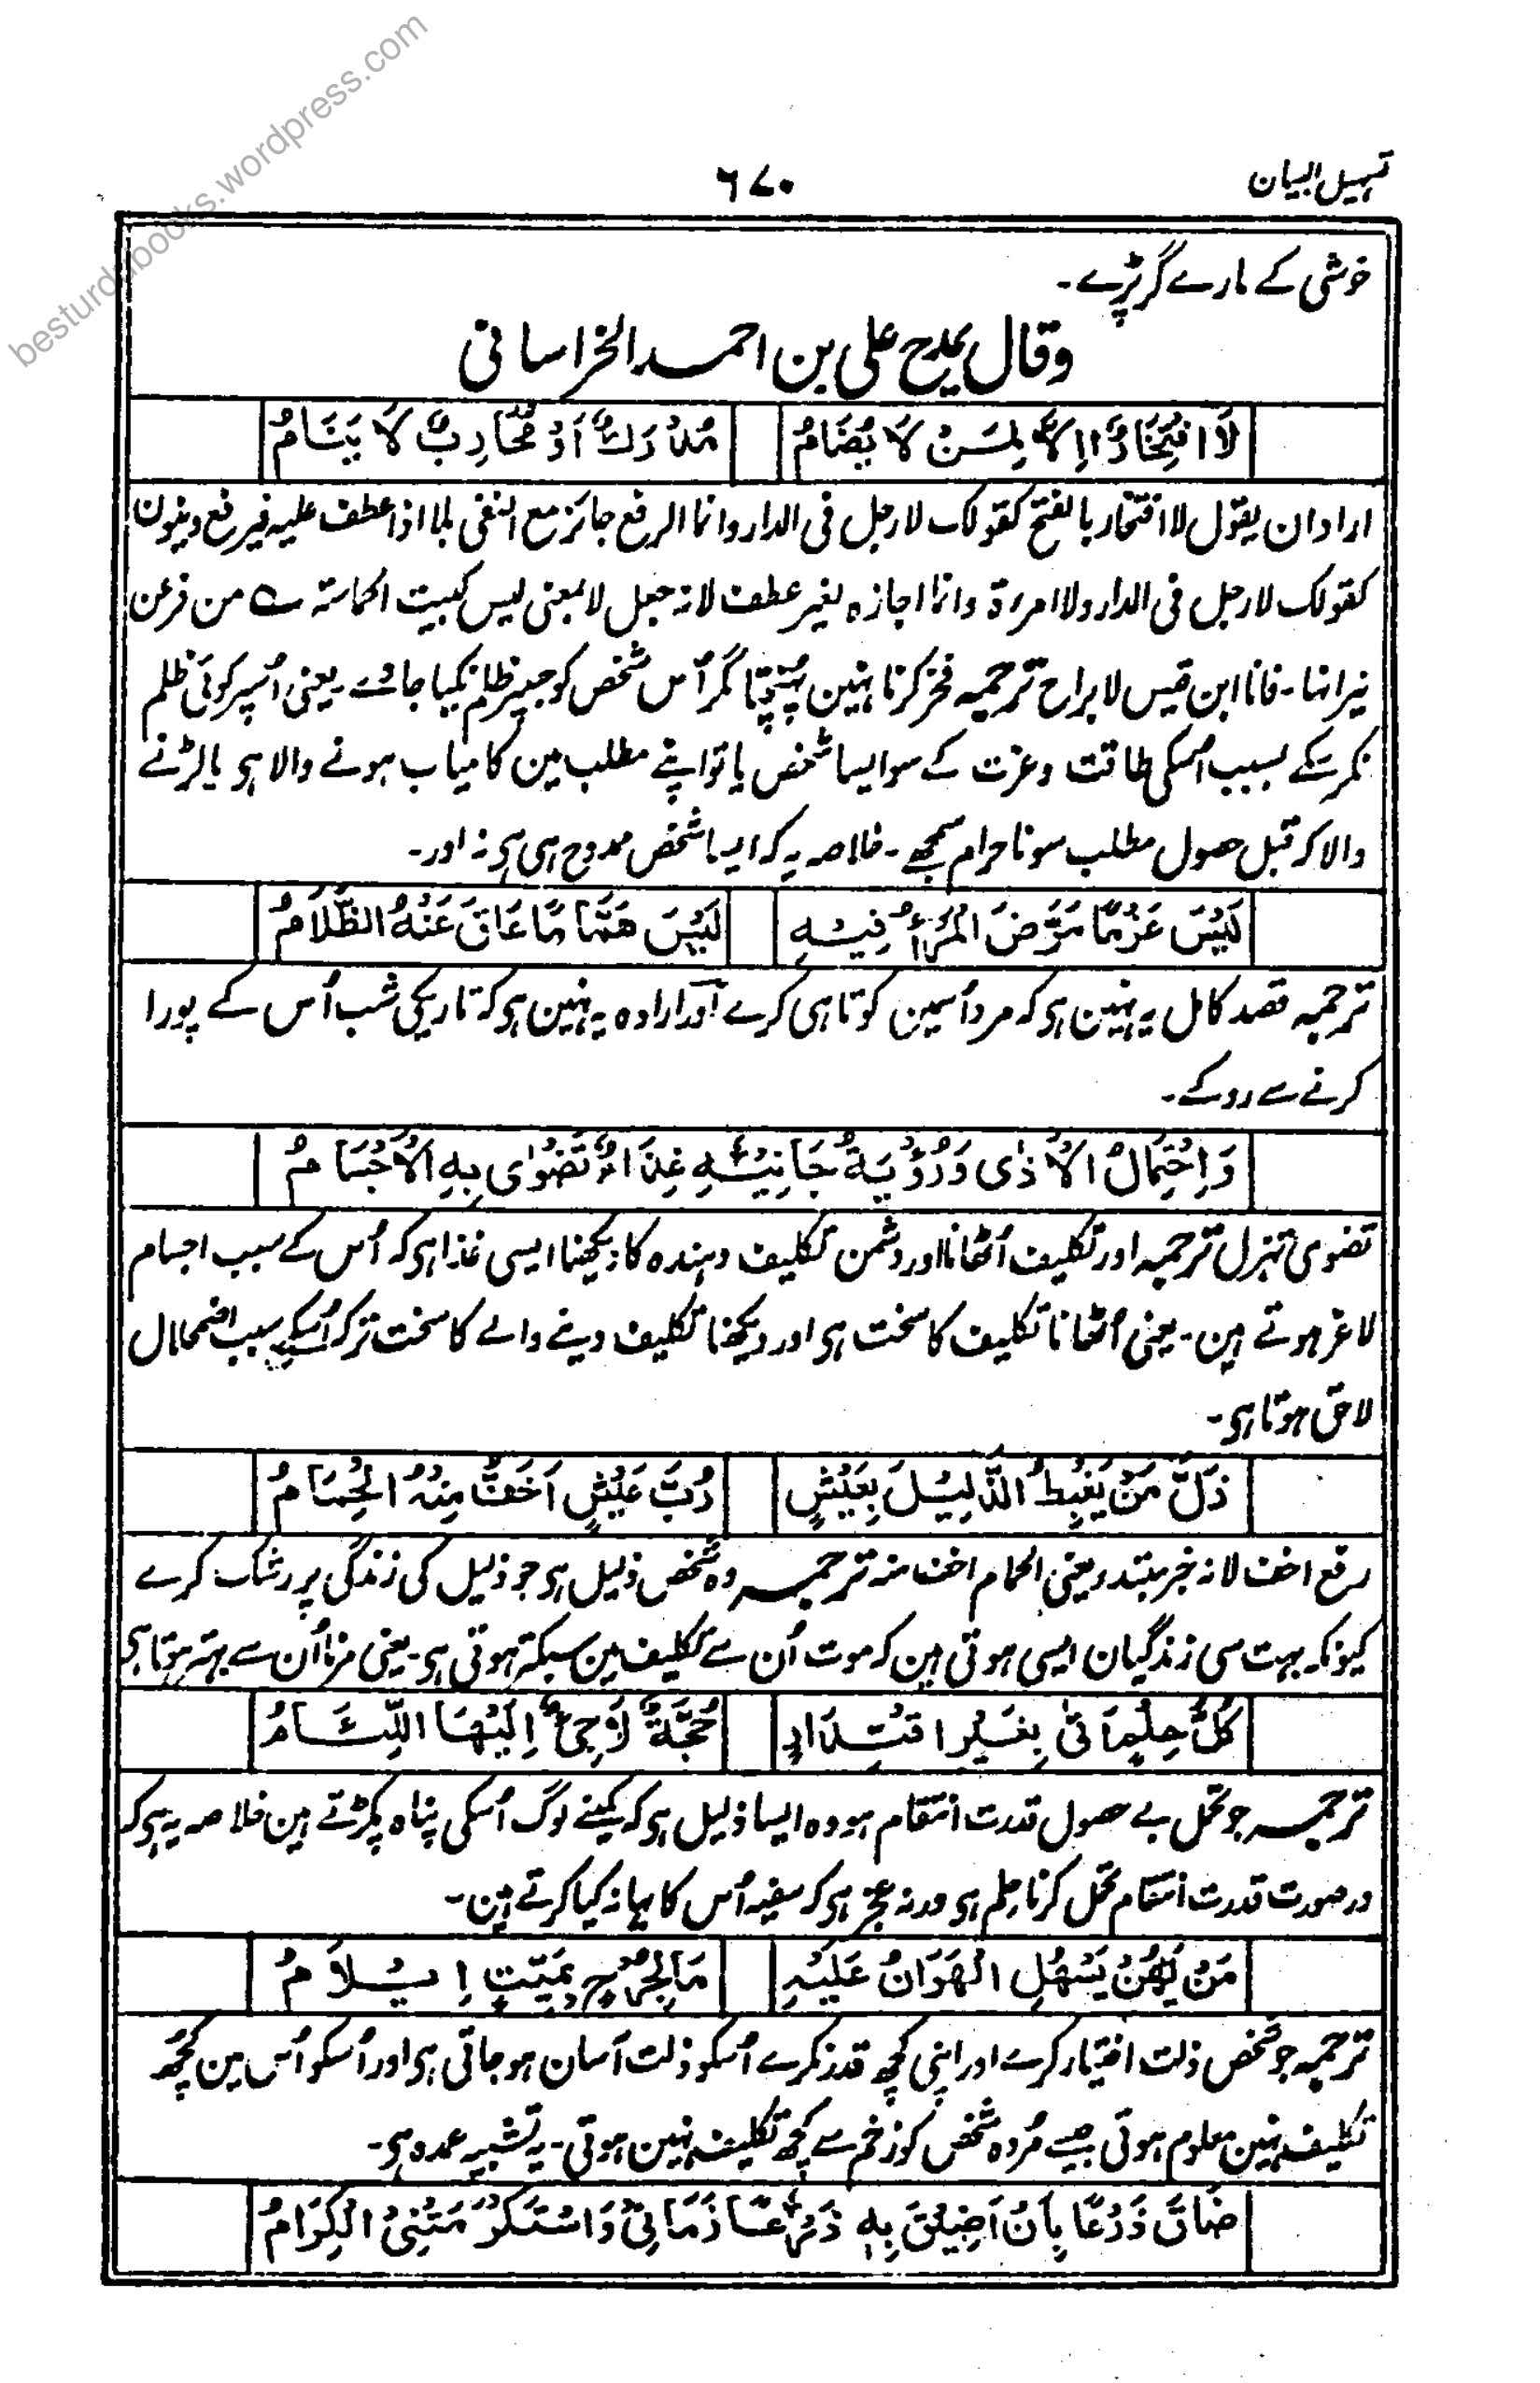 besturdubooks.wordpress.com
تسہیل البیان
٦٧٠
خوشی کے مارے گر پڑے۔
وقال یمدح علی بن احمد الخراسانی
لَا افْتِخَارٌ اِلَّا لِمَنْ لَا یُضَامُ مُدْرِكٌ اَوْ مُحَارِبٌ لَا یَنَامُ
اراد ان یقول لا افتخار بالفتح کقولک لا رجل فی الدار وانما الرفع جائز مع النفی بلا اذا عطف علیہ فیرفع وینون
کقولک لا رجل فی الدار ولا امرءۃ وانما اجازہ بغیر عطف لانہ جعل لا بمعنی لیس کبیت الحماسۃ ؎ من فرعن
نیرانہا۔ فانا ابن قیس لا براح ترجمہ فخر کرنا نہین پہنچتا مگر اُس شخص کو جسپر ظلم نکیا جاوے۔ یعنی اُسپر کوئی ظلم
نکر سکے بسبب اُسکی طاقت وعزت کے سو ایسا شخص یا تو اپنے مطلب مین کامیاب ہونے والا ہی یا لڑنے
والا کہ قبل حصول مطلب سونا حرام سمجھے۔ خلاصہ یہ کہ ایسا شخص ممدوح ہی ہی نہ اور۔
لَیْسَ عَزْمًا مَرَّضَ الْمَرْءُ فِیْہِ لَیْسَ ھَمًّا مَا عَاقَ عَنْہُ الظَّلَامُ
ترجمہ قصد کامل یہ نہین ہی کہ مرد اُسمین کوتاہی کرے اور ارادہ یہ نہین ہی کہ تاریکی شب اُس کے پورا
کرنے سے روکے۔
وَاحْتِمَالُ الْاَذٰی وَرُؤْیَةُ جَانِیْہِ غِذَاءٌ تَضْوٰی بِہِ الْاَجْسَامُ
تضوی تہزل ترجمہ اور تکلیف اُٹھانا اور دشمن تکلیف دہندہ کا دیکھنا ایسی غذا ہی کہ اُس کے سبب اجسام
لاغر ہوتے ہین۔ یعنی اُٹھانا تکلیف کا سخت ہی اور دیکھنا تکلیف دینے والے کا سخت تر کہ اُسکے سبب اضمحلال
لاحق ہوتا ہی۔
ذَلَّ مَنْ یَغْبِطُ الذَّلِیْلَ بِعَیْشٍ رُبَّ عَیْشٍ اَخَفُّ مِنْہُ الْحِمَامُ
رفع اخف لانہ خبر مبتدء یعنی الحمام اخف منہ ترجمہ وہ شخص ذلیل ہی جو ذلیل کی زندگی پر رشک کرے
کیونکہ بہت سی زندگیان ایسی ہوتی ہین کہ موت اُن سے تکلیف مین سبکتر ہوتی ہی۔ یعنی مرنا اُن سے بہتر ہوتا ہی
كُلُّ حِلْمٍ اَتٰی بِغَیْرِ اقْتِدَارٍ حُجَّةٌ لَاجِئٌ اِلَیْھَا اللِّئَامُ
ترجمہ جو تحمل بے حصول قدرت انتقام ہو وہ ایسا ذلیل ہی کہ کمینے لوگ اُسکی پناہ پکڑتے ہین خلاصہ یہ ہی کہ
درصورت قدرت انتقام تحمل کرنا حلم ہی ورنہ عجز ہی کہ سفیہ اُس کا بہانہ کیا کرتے ہین۔
مَنْ یَھُنْ یَسْھُلِ الْھَوَانُ عَلَیْہِ مَا لِجُرْحٍ بِمَیِّتٍ اِیْلَامُ
ترجمہ جو شخص ذلت اختیار کرے اور اپنی کچھ قدر نکرے اُسکو ذلت آسان ہو جاتی ہی اور اُسکو اُس مین کچھ
تکلیف نہین معلوم ہوتی جیسے مُردہ شخص کو زخم سے کچھ تکلیف نہین ہوتی۔ یہ تشبیہ عمدہ ہی۔
ضَاقَ ذَرْعًا بِاَنْ اَضِیْقَ بِہٖ ذَرْعًا زَمَانِیْ وَاسْتَكْرَمَتْنِیْ الْكِرَامُ